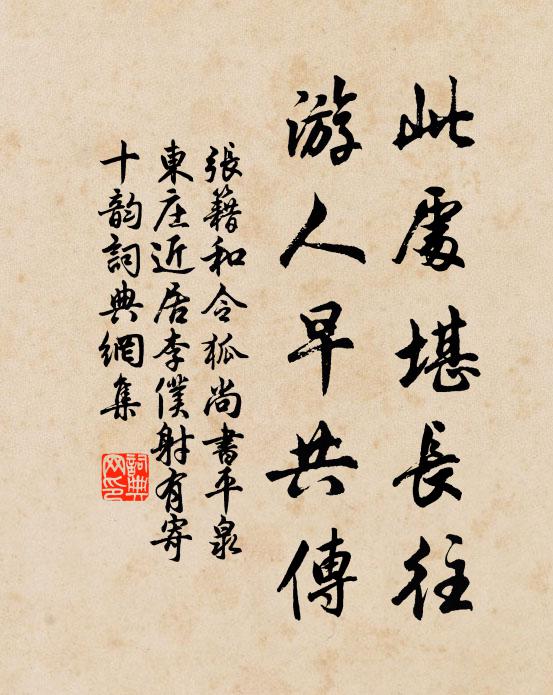 此處堪長往
游人早共傳
張籍和令狐尚書平泉
東庄近居李僕射有寄
十韵詞典網集
詞典网印